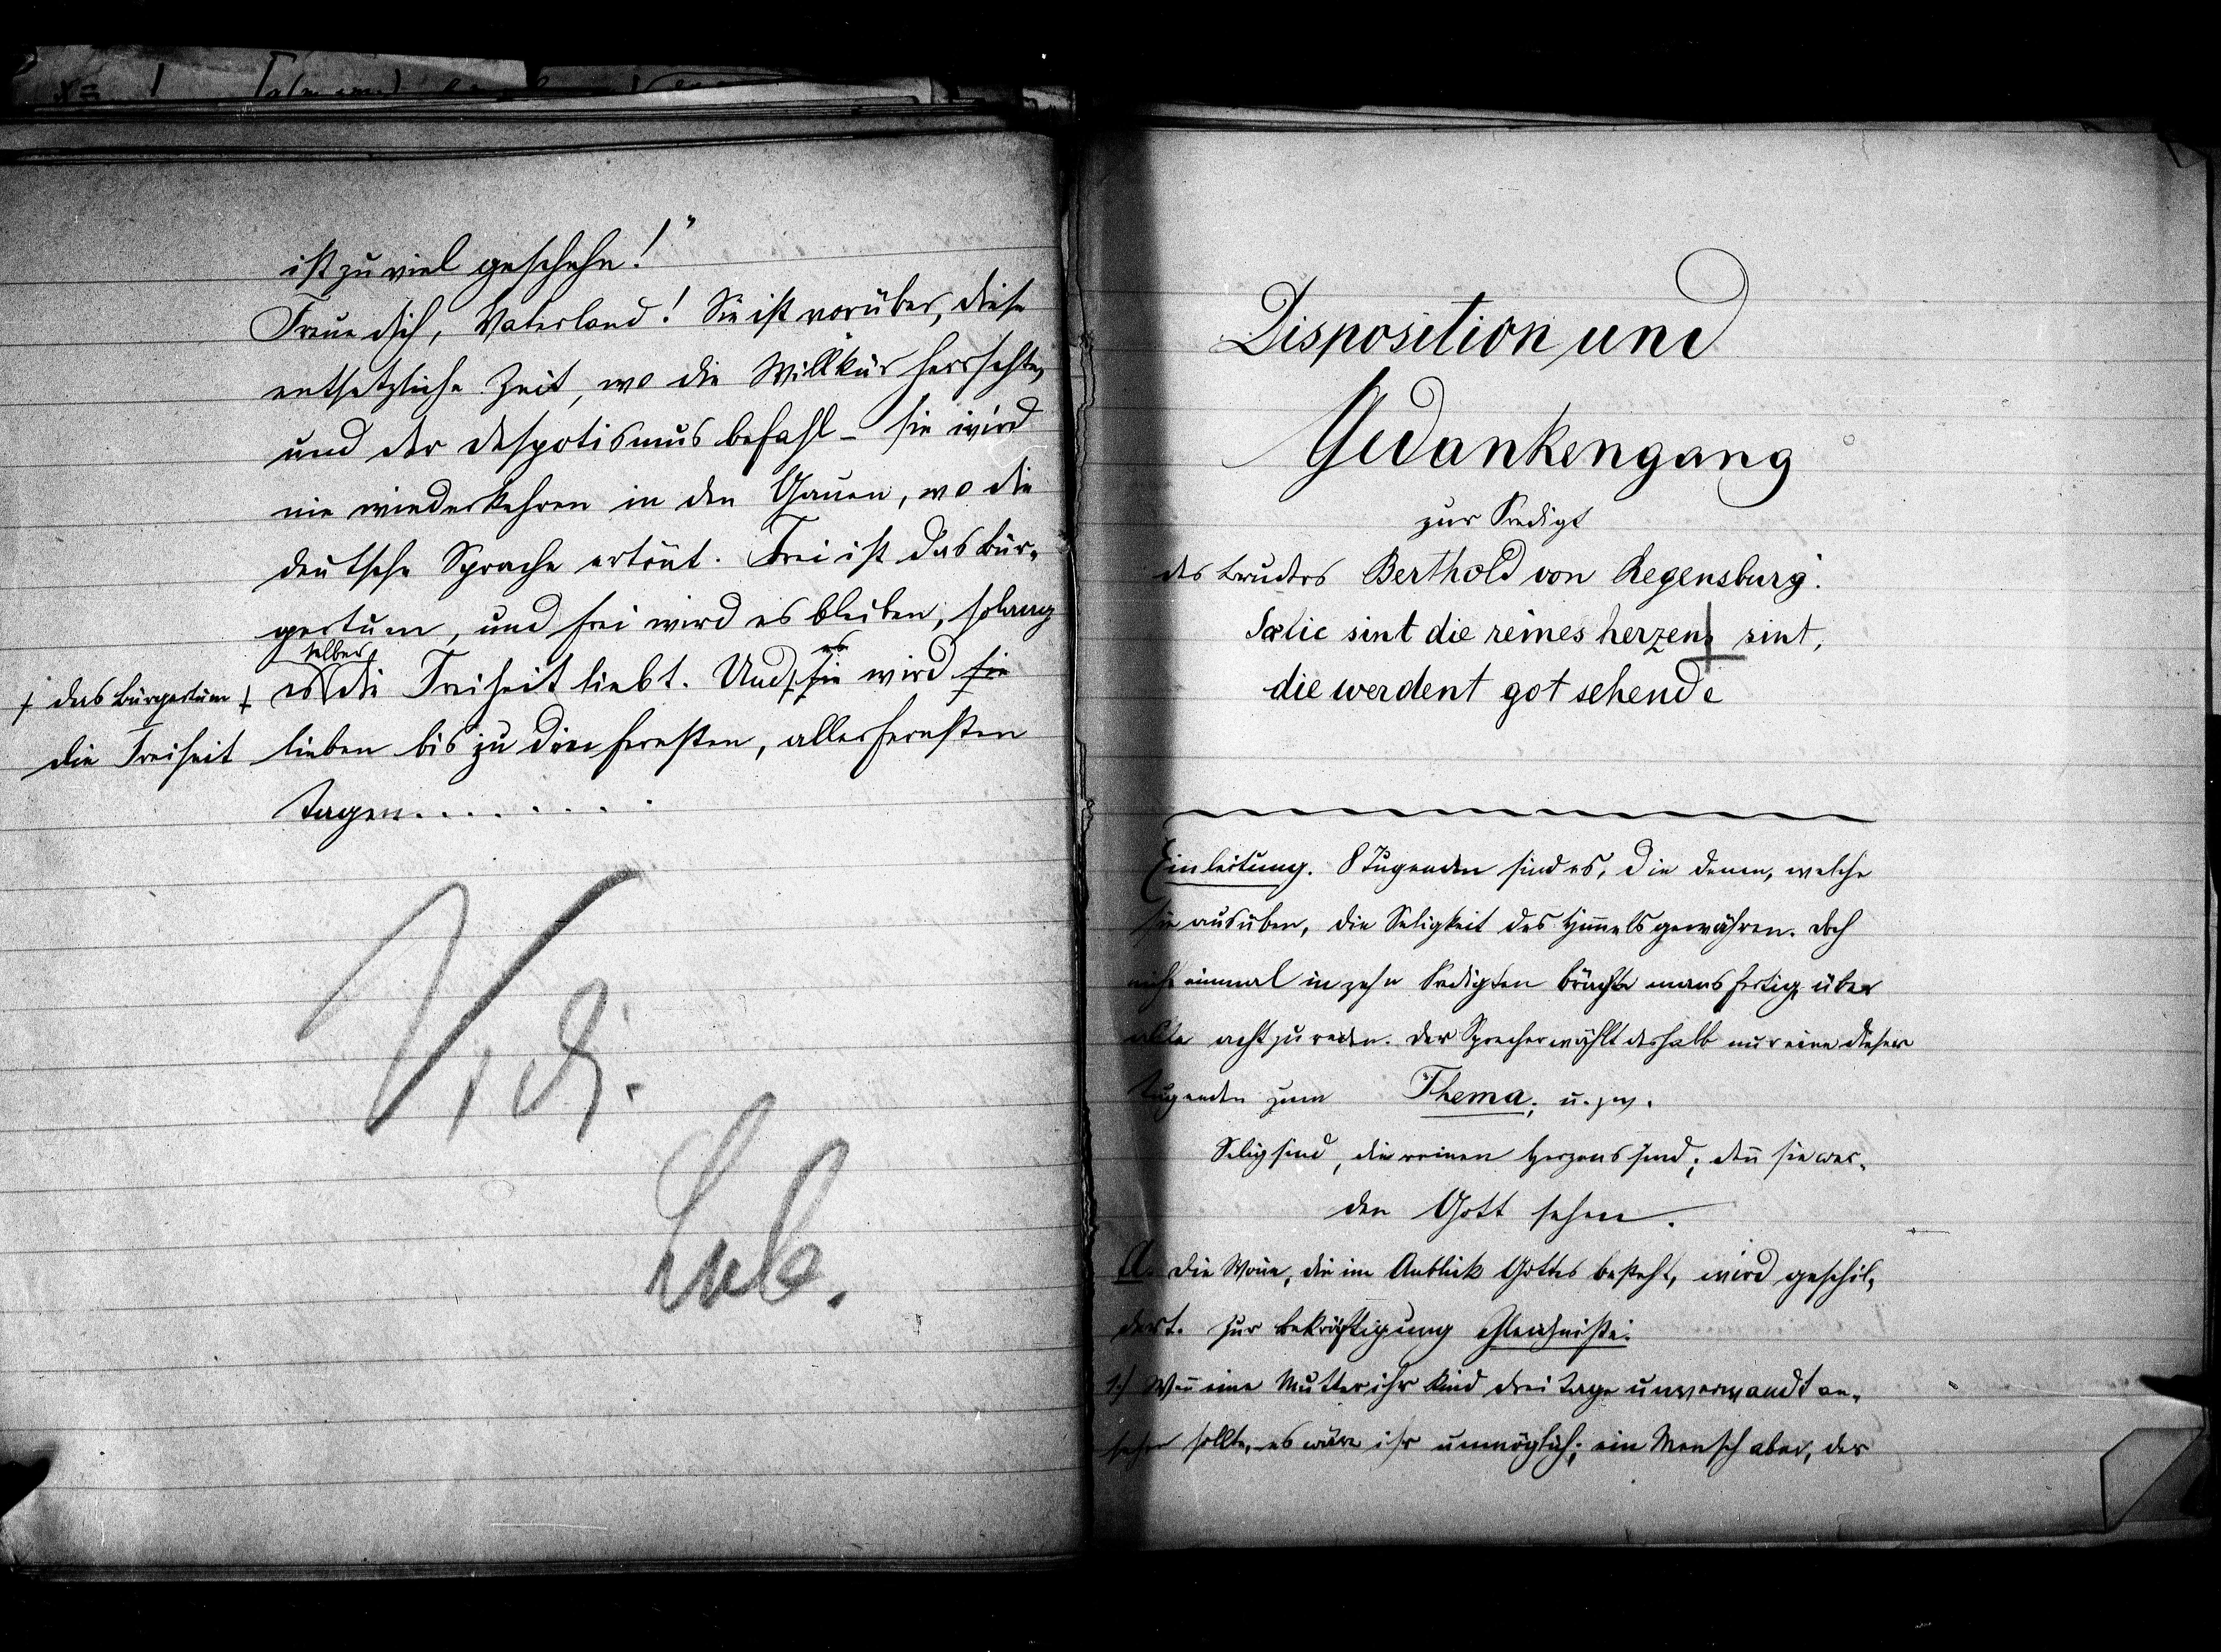 ist zu viel geschehn!"
Freue dich, Vaterland! Sie ist vorüber, diese
entsetzliche Zeit, wo die Willkür herrschte,
und der Despotismus befahl – sie wird
nie wiederkehren in den Gauen, wo die
deutsche Sprache ertönt. Frei ist das Bür-
gertum, und frei wird es bleiben, solang
selber
es die Freiheit liebt. Und sie wird sie
es
+ das Bürgertum +
die Freiheit
lieben bis zu den fernsten, allerfernsten
Tagen........
Vidi.
Disposition und
Gedankengang
zur Predigt
des Bruders Berthold von Regensburg:
Sælic sint die reines herzens sint,
die werdent got sehende
Einleitung. 8 Tugenden sind es, die denen, welche
sie ausüben, die Seligkeit des Himmels gewähren. Doch
nicht einmal in zehn Predigten brächte mans fertig über
alle acht zu reden. Der Sprecher wählt deshalb nur eine dieser
Tugenden zum Thema; u. zw.
Selig sind, die reinen Herzens sind; den̄ sie wer-
den Gott sehen.
A. Die Won̄e, die im Anblick Gottes besteht, wird geschil-
dert. Zur Bekräftigung Gleichnisse:
1.) Wen̄ eine Mutter ihr Kind drei Tage unverwandt an-
sehen sollte, es wäre ihr unmöglich; ein Mensch aber, der